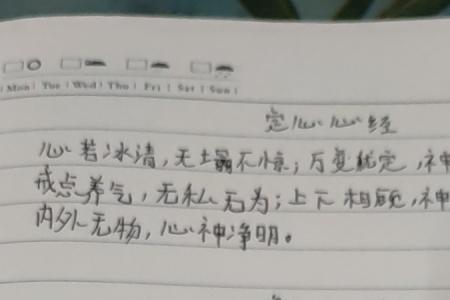 Mon Tue Wed Thu Fri Sat Sun
定心心经
心若冰清，无塌不惊；万变犹定，神
戒点养气，无私无为；上下相顾，神
内外无物，心神净明。